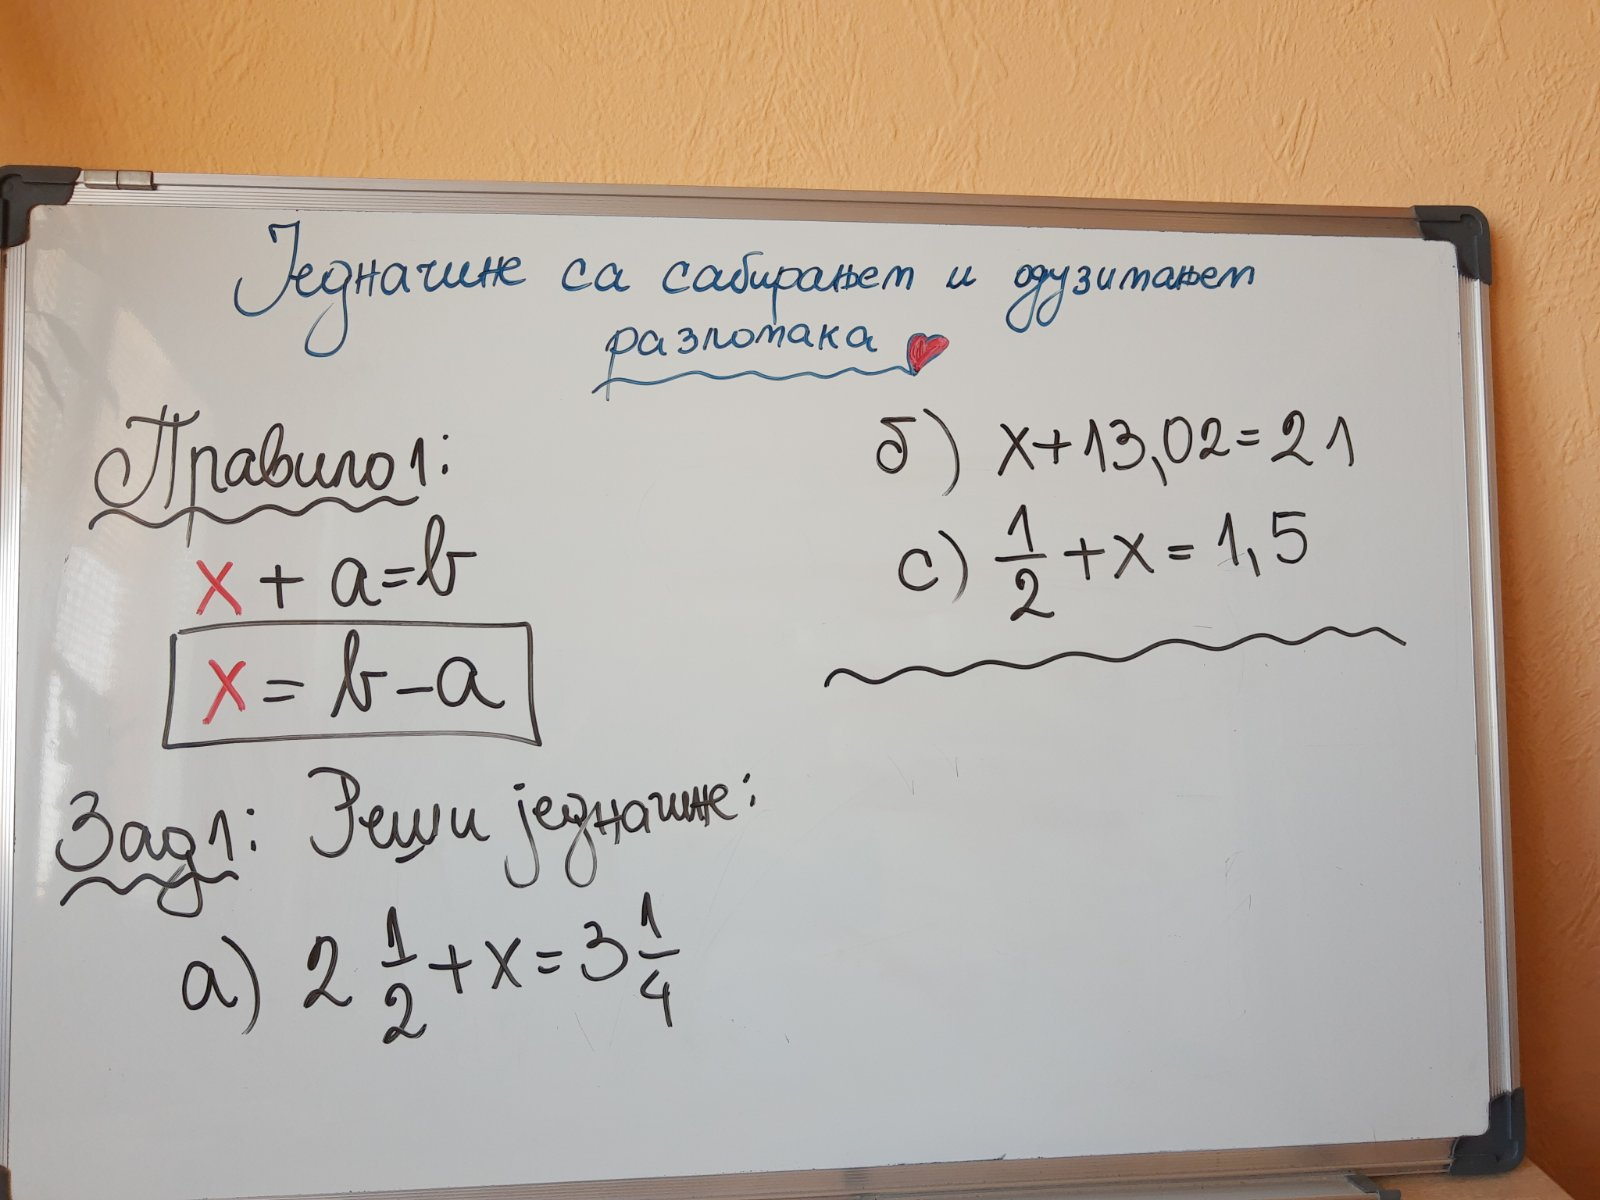 Једначине са сабирањем и одузимањем
разломака
Правило 1:
x + a = b
x = b - a
Зад 1: Реши једначине:
а) 2 1/2 + x = 3 1/4
б) x + 13,02 = 21
с) 1/2 + x = 1,5